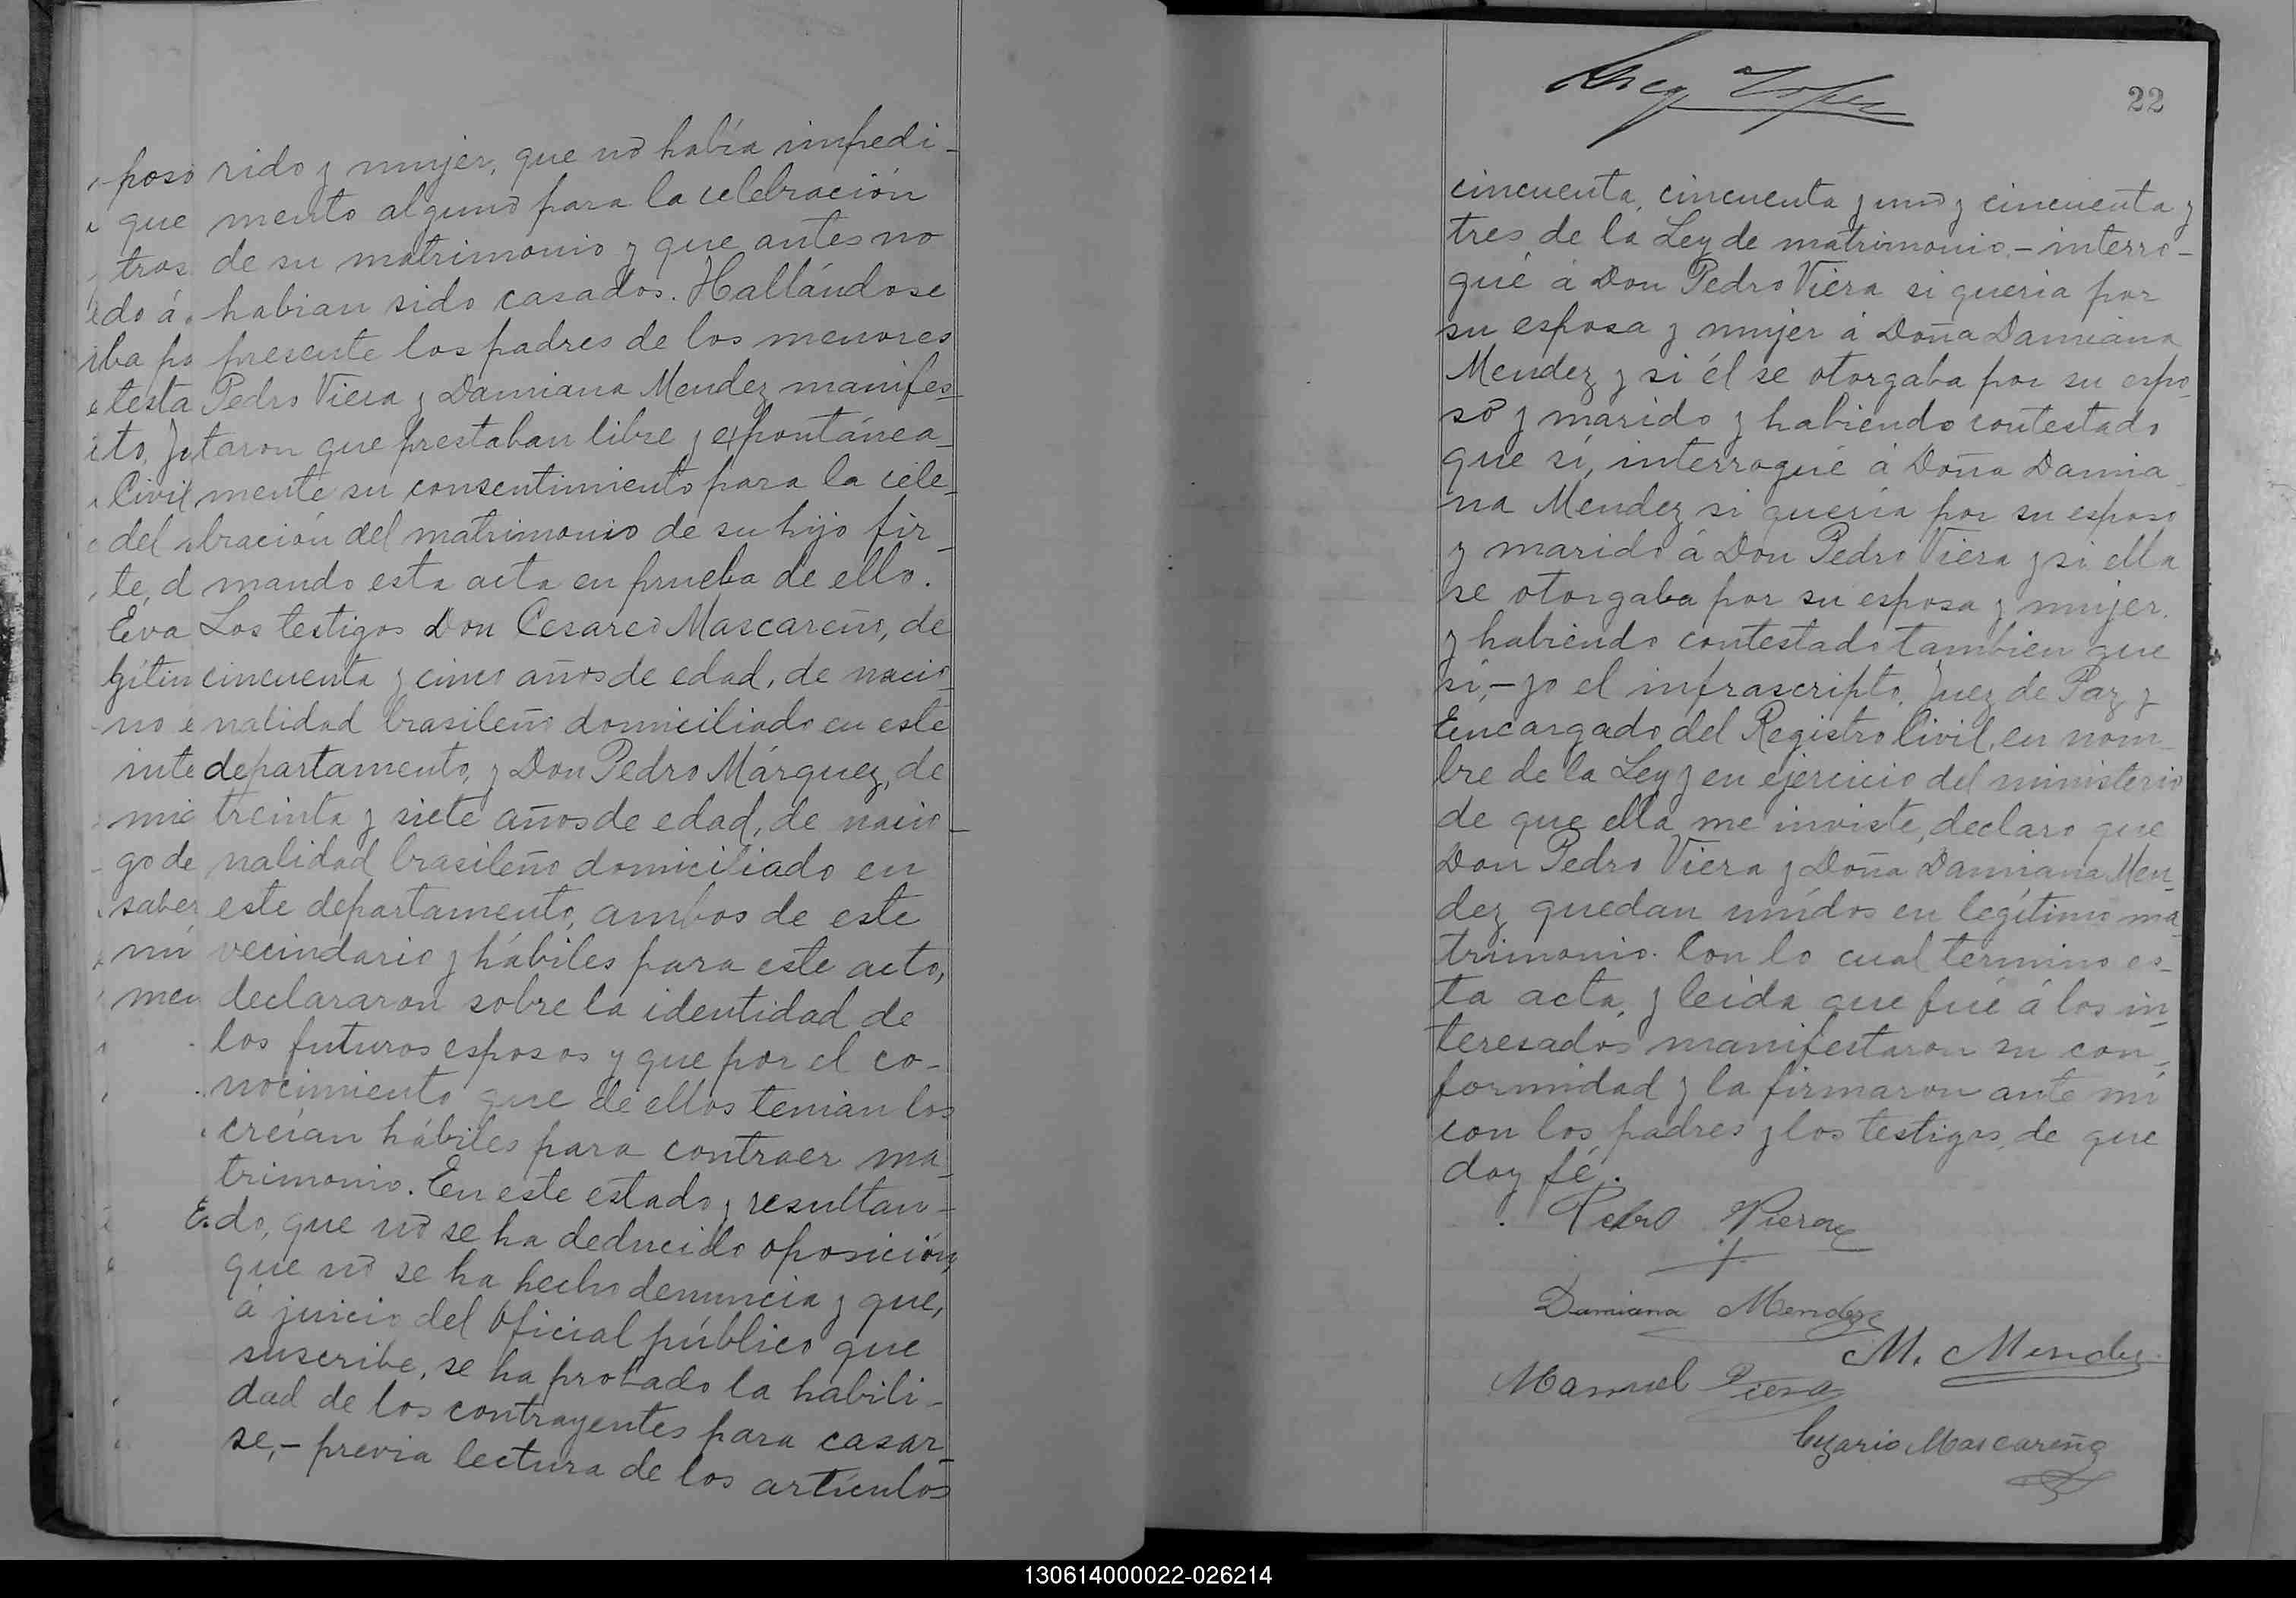 rido y mujer, que nó había impedi-
mento alguno para la celebración
de su matrimonio y que antes no
habian sido casados. Hallándose
presente los padres de los menores
Pedro Viera y Damiana Mendez manifes-
taron que prestaban libre y expontánea-
mente su consentimiento para la cele-
bración del matrimonio de su hijo fir-
mando esta acta en prueba de ello.
Los testigos Don Cesareo Mascareño, de
cincuenta y cinco años de edad, de nacio-
nalidad brasileño domiciliado en este
departamento, y Don Pedro Márquez, de
treinta y siete años de edad, de nacio-
nalidad brasileño domiciliado en
este departamento, ambos de este
vecindario y hábiles para este acto,
declararon sobre la identidad de
los futuros esposos y que por el co-
nocimiento que de ellos tenian los
creían hábiles para contraer ma-
trimonio. En este estado y resultan-
do, que nó se ha deducido oposición,
que nó se ha hecho denuncia y que,
á juicio del Oficial público que
suscribe, se ha probado la habili-
dad de los contrayentes para casar-
se,- previa lectura de los artículos
poso
que
tros
do á
iba po
testa
to, J
Civil
del
te, d
Eva
gítim
no e
inte
mic
go de
saber
mí
men
22
cincuenta, cincuenta y uno y cincuenta y
tres de la Ley de matrimonio,- interro-
gué á Don Pedro Viera si quería por
su esposa y mujer á Doña Damiana
Mendez y si él se otorgaba por su espo-
so y marido y habiendo contestado
que sí, interrogué á Doña Damia-
na Mendez si quería por su esposo
y marido á Don Pedro Viera y si ella
se otorgaba por su esposa y mujer,
y habiendo contestado tambien que
sí,- yo el infrascripto, Juez de Paz y
Encargado del Registro Civil, en nom-
bre de la Ley y en ejercicio del ministerio
de que ella me inviste, declaro que
Don Pedro Viera y Doña Damiana Men-
dez quedan unídos en legítimo ma-
trimonio. Con lo cual termino es-
ta acta, y leída que fué á los in-
teresados manifestaron su con-
formidad y la firmaron ante mí
con los padres y los testigos, de que
doy fé.
Pedro Viera
Damiana Mendez
M. Mendez
Manuel Viera
Cezario Mascareño
130614000022-026214